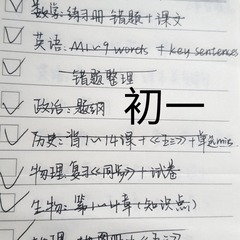 数学:练习册 错题+课文
英语:M1~9 words + key sentences
错题整理
政治:题纲
初一
历史:背1~14课+《五三》+单选mis
物理复习《同步》+试卷
生物:第1~4章(知识点)
地理